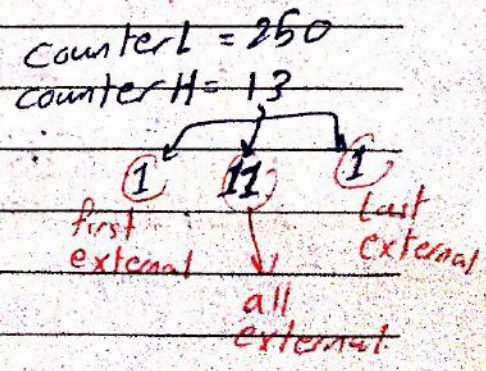 counterL = 250
counterH = 13
1 11 1
first external
all external
Last external